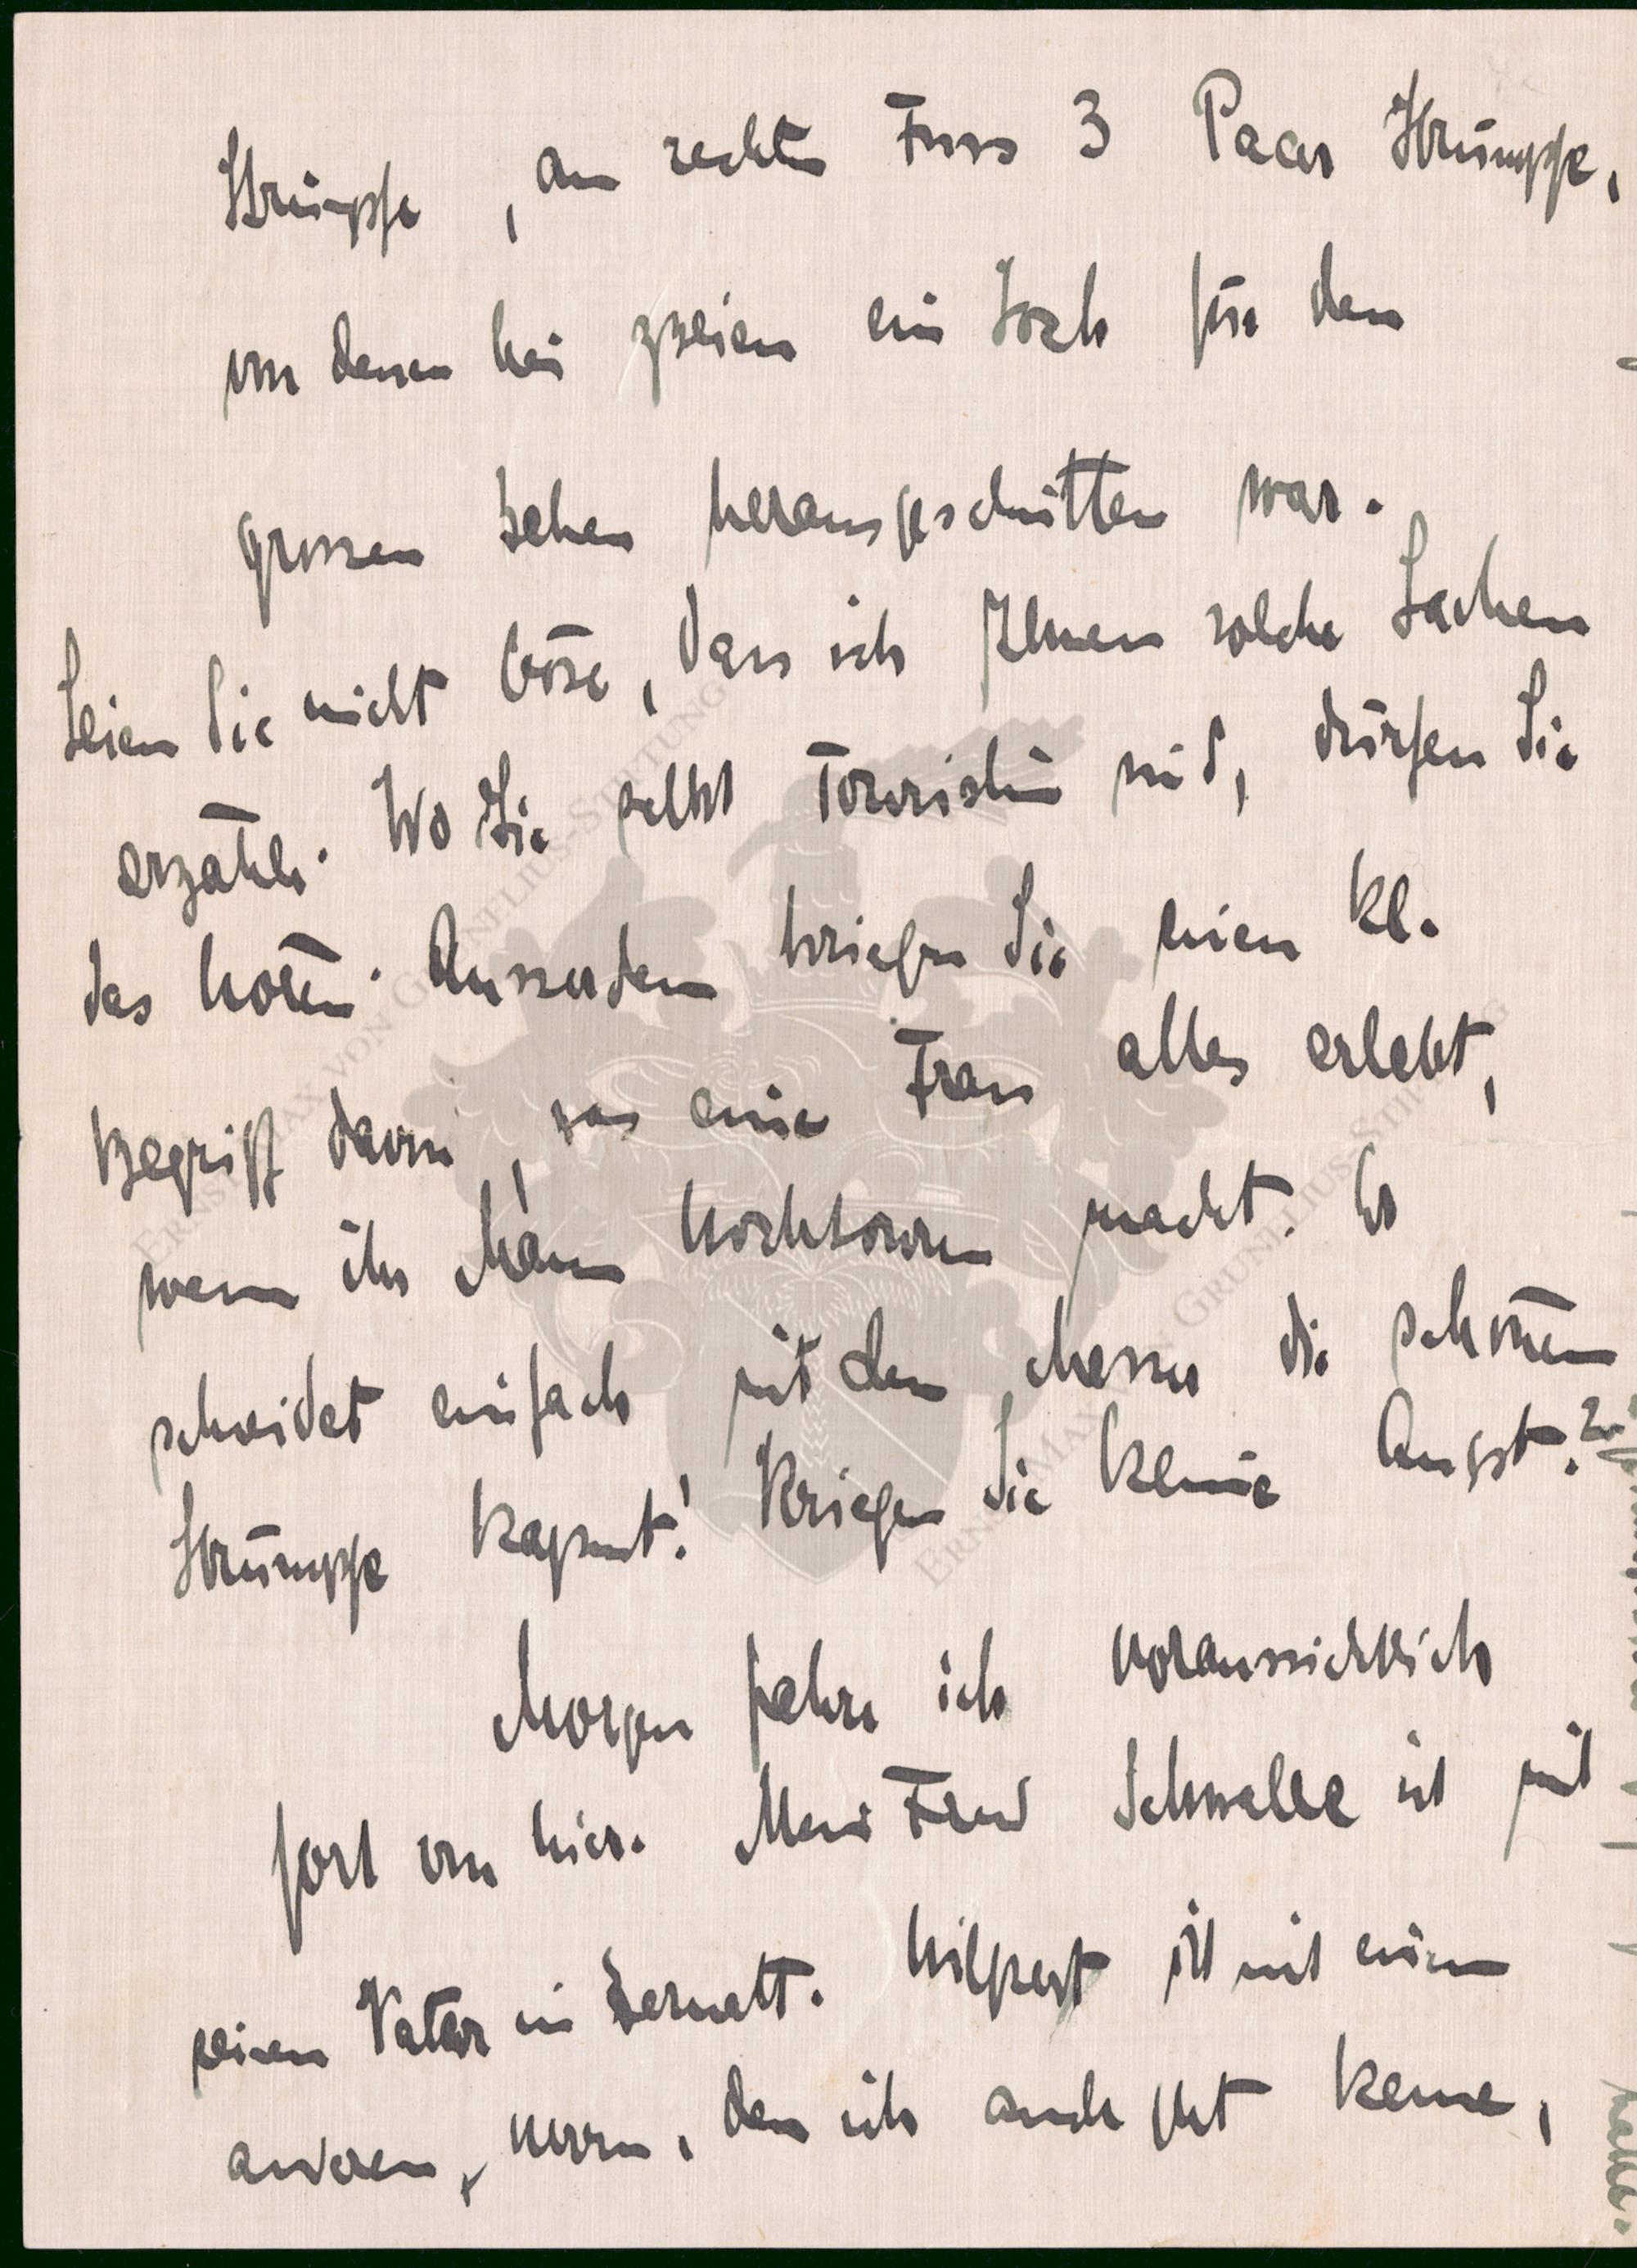 Strümpfe, am rechten Fuss 3 Paar Strümpfe,
von denen bei zweien ein Loch für den
grossen Zehen herausgeschnitten war.
Seien Sie nicht böse, dass ich Ihnen solche Sachen
erzähle. Wo Sie selbst Touristin sind, dürfen Sie
das hören. Ausserdem kriegen Sie einen kl.
Begriff davon, was eine Frau alles erlebt,
wenn ihr Mann Hochtouren macht. Er
schneidet einfach mit dem Messer die schönen
Strümpfe kaput! Kriegen Sie keine Angst?
Morgen fahre ich voraussichtlich
fort von hier. Mein Freund Schwalbe ist mit
seinem Vater in Zermatt. Hilpert ist mit einem
anderen Herrn, den ich auch gut kenne,
habe.
ERNST MAX VON GRUNELIUS-STIFTUNG
ERNST MAX VON GRUNELIUS-STIFTUNG